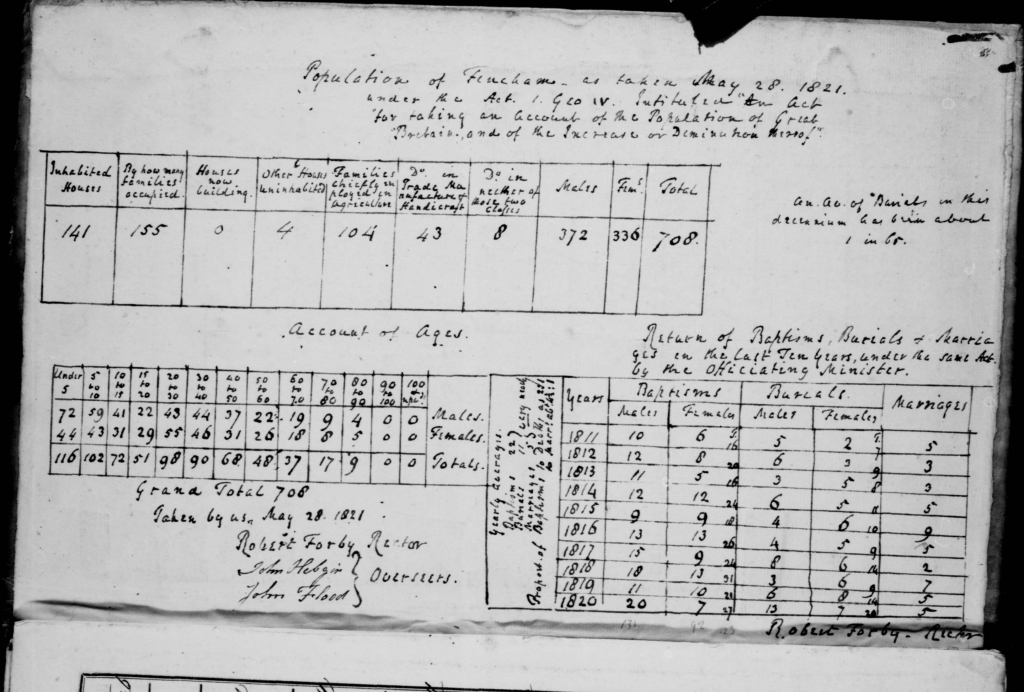 Population of Fincham - as taken May 28. 1821.
under the Act. 1. Geo IV. Intituled "An Act
"for taking an Account of the Population of Great
"Britain, and of the Increase or Diminution thereof"
Inhabited Houses | By how many families occupied. | Houses now building. | Other Houses uninhabited | Families chiefly employed in agriculture | Do. in Trade Manufacture & Handicraft | Do. in neither of those two Classes | Males | Fems | Total
141 | 155 | 0 | 4 | 104 | 43 | 8 | 372 | 336 | 708.
An. Av. of Burials in this
decennium has been about
1 in 65.
Account of Ages.
Under 5 | 5 to 10 | 10 to 15 | 15 to 20 | 20 to 30 | 30 to 40 | 40 to 50 | 50 to 60 | 60 to 70 | 70 to 80 | 80 to 90 | 90 to 100 | 100 & upds.
72 | 59 | 41 | 22 | 43 | 44 | 37 | 22 | 19 | 9 | 4 | 0 | 0 | Males.
44 | 43 | 31 | 29 | 55 | 46 | 31 | 26 | 18 | 8 | 5 | 0 | 0 | Females.
116 | 102 | 72 | 51 | 98 | 90 | 68 | 48 | 37 | 17 | 9 | 0 | 0 | Totals.
Grand Total 708
Taken by us, May 28. 1821
Robert Forby Rector
John Hebgin
John Flood
Overseers.
Return of Baptisms, Burials & Marria
ges in the last Ten Years, under the same Act.
by the Officiating Minister.
Yearly averages.
Baptisms 22
Burials 11
Marriages 5
Proport. of Baptisms to Deaths
Years | Baptisms | Burials. | Marriages
Males | Females | Males | Females
1811 | 10 | 6 | T. 16 | 5 | 2 | T. 7 | 5
1812 | 12 | 8 | 20 | 6 | 3 | 9 | 3
1813 | 11 | 5 | 16 | 3 | 5 | 8 | 3
1814 | 12 | 12 | 24 | 6 | 5 | 11 | 5
1815 | 9 | 9 | 18 | 4 | 6 | 10 | 9
1816 | 13 | 13 | 26 | 4 | 5 | 9 | 5
1817 | 15 | 9 | 24 | 8 | 6 | 14 | 2
1818 | 18 | 13 | 31 | 3 | 6 | 9 | 7
1819 | 11 | 10 | 21 | 6 | 8 | 14 | 5
1820 | 20 | 7 | 27 | 13 | 7 | 20 | 5
Robert Forby - Rector